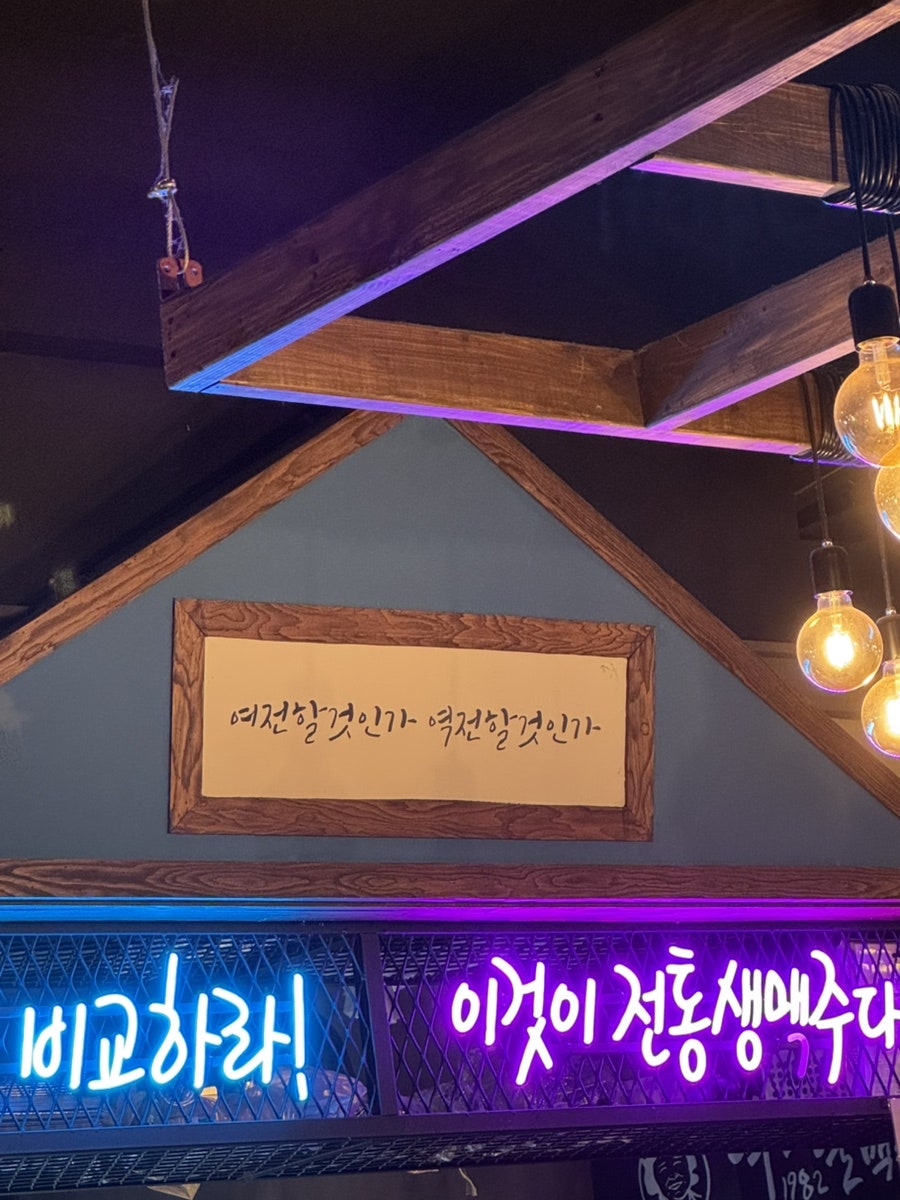 여전할것인가 역전할것인가
비교하라!
이것이 전통생맥주다
1982